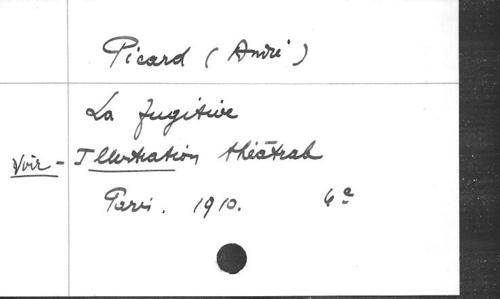 Picard (André)
La fugitive
Voir - Illustration théâtrale
Paris. 1910. 4e